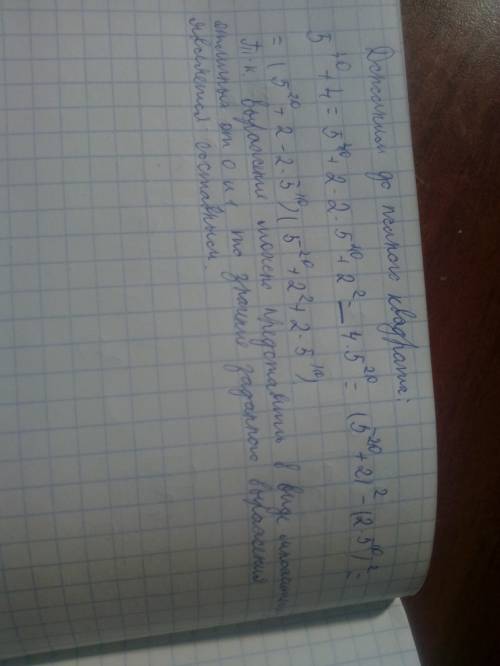 Дополним до полного квадрата:
5⁴⁰ + 4 = 5⁴⁰ + 2·2·5²⁰ + 2² − 4·5²⁰ = (5²⁰ + 2)² − (2·5¹⁰)² =
= (5²⁰ + 2 − 2·5¹⁰)(5²⁰ + 2² + 2·5¹⁰)
Т.к выражение можно представить в виде множит.
отличных от 0 и 1, то значение заданного выражения
является составным.